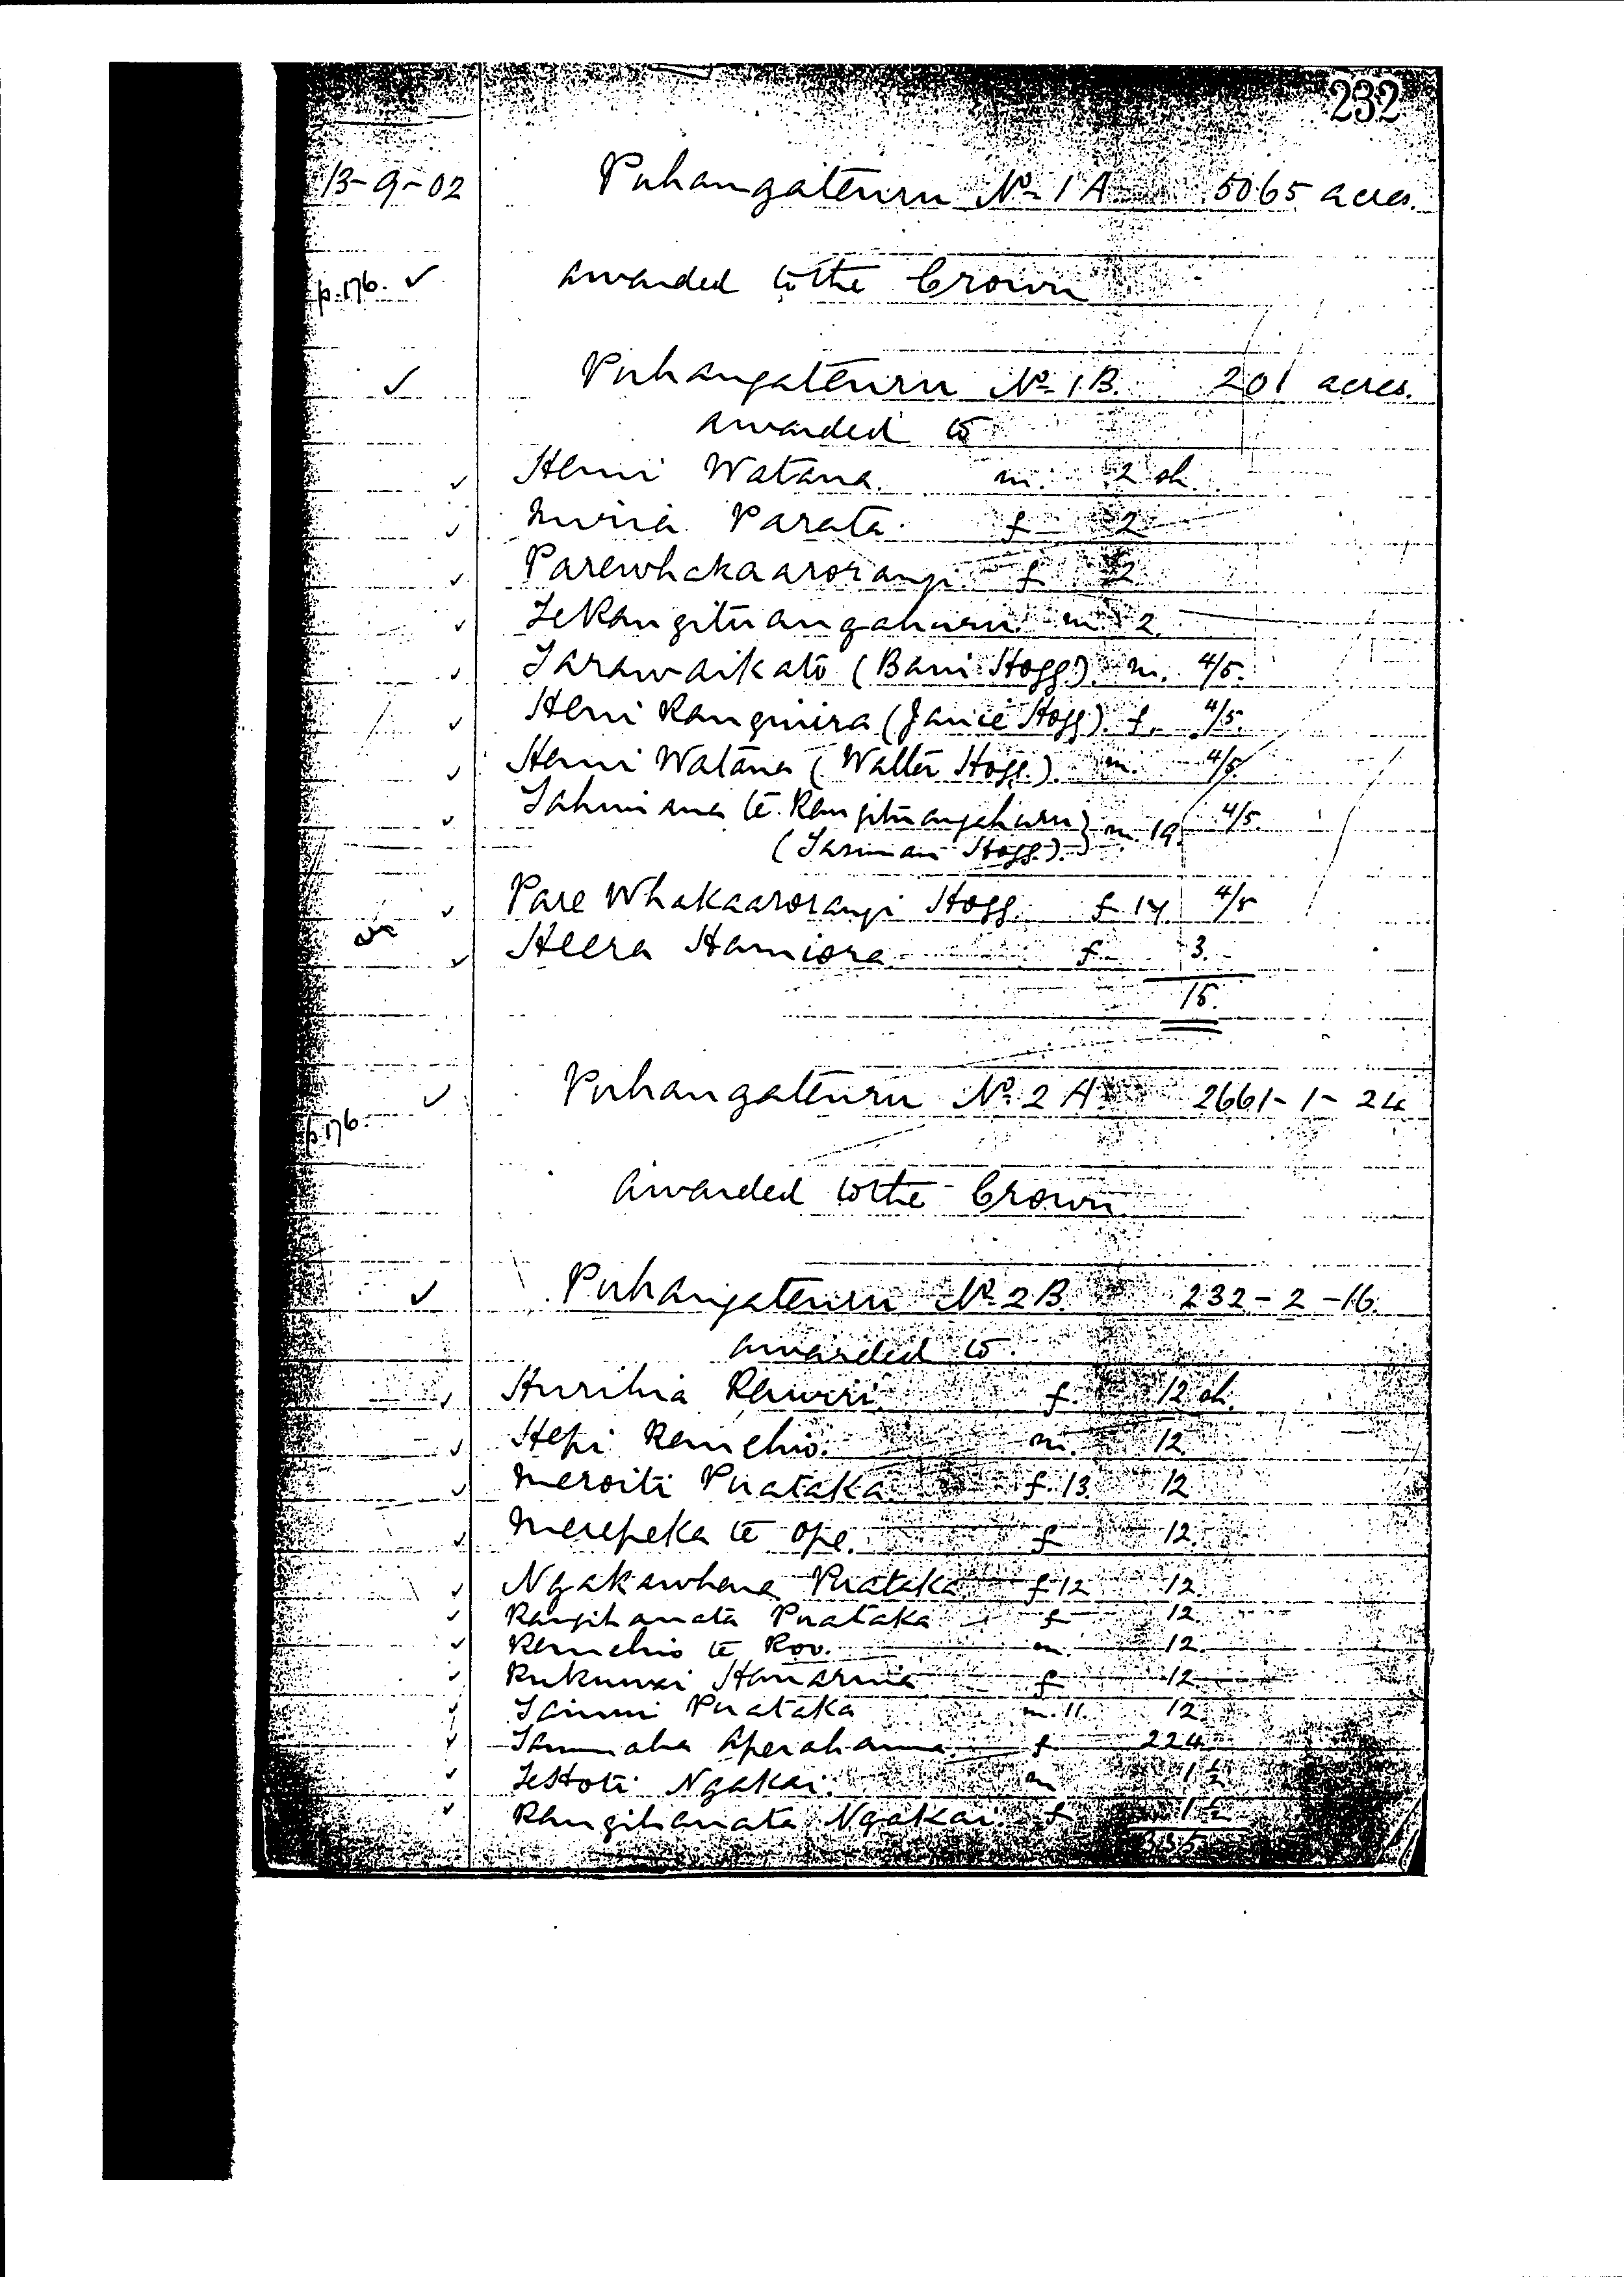 232
13-9-02 Puhangateuru No 1A 5065 acres.
p.176. ✓ awarded to the Crown
✓ Puhangateuru No 1B. 201 acres.
awarded to
✓ Hemi Watana m. 2 sh.
✓ Muria Parata f 2
✓ Parewhakaarorangi f 2
✓ Te Rangituangahuru m 2.
✓ Tarawaikato (Bani Hogg) m. 4/5.
✓ Heni Rangiuira (Janie Hogg) f. 4/5.
✓ Hemi Watana (Walter Hogg.) m. 4/5
✓ Tahuiana te Rangituangahuru } m. 19. 4/5.
(Tasman Hogg.)
✓ Pare Whakaarorangi Hogg f 14 4/5
✓ Heera Hamiora f 3.
15.
✓ Puhangateuru No 2A 2661-1-24
p.176.
awarded to the Crown
✓ Puhangateuru No 2B. 232-2-16.
awarded to
✓ Hurihia Rawiri f. 12 sh.
✓ Hepi Remehio. m. 12.
✓ Meroiti Puataka f. 13. 12
✓ Merepeka te Ope. f 12.
✓ Ngakawhena Puataka f 12 12
✓ Rangihanata Puataka f 12.
✓ Remehio te Roo. m. 12.
✓ Hanarua f 12
✓ Puataka m. 11. 12.
✓ Aperahama f 224
✓ Te Hoti Ngakai. m 1½
✓ Rangihanata Ngakai. f 1½
335